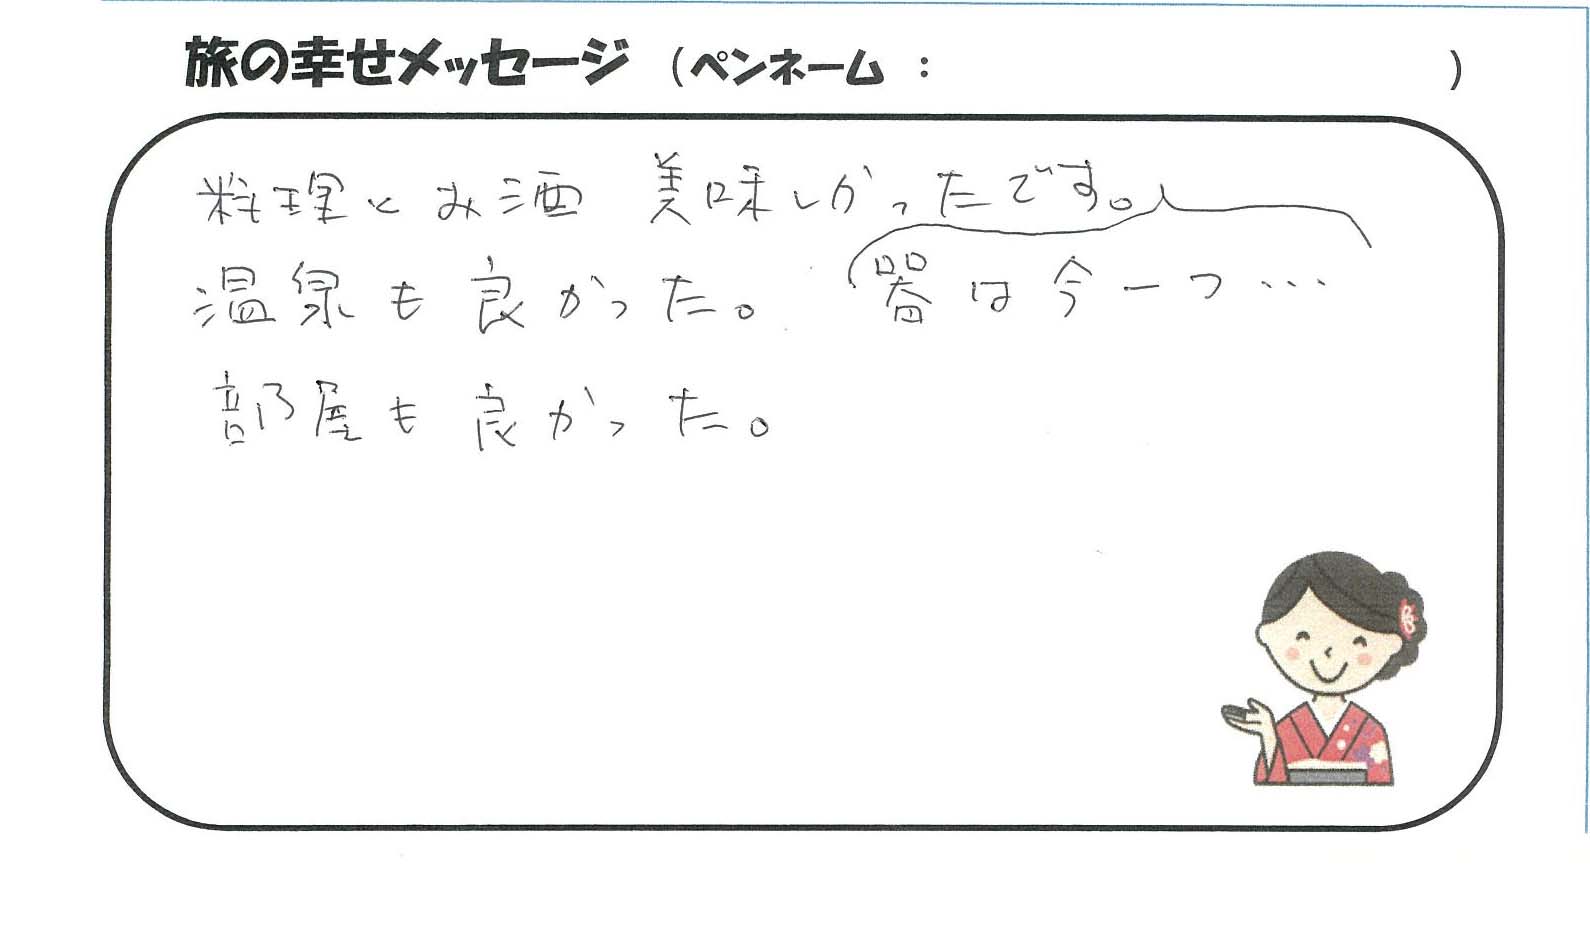 旅の幸せメッセージ（ペンネーム：　　　）
料理とお酒 美味しかったです。
器は今一つ…
温泉も良かった。
部屋も良かった。